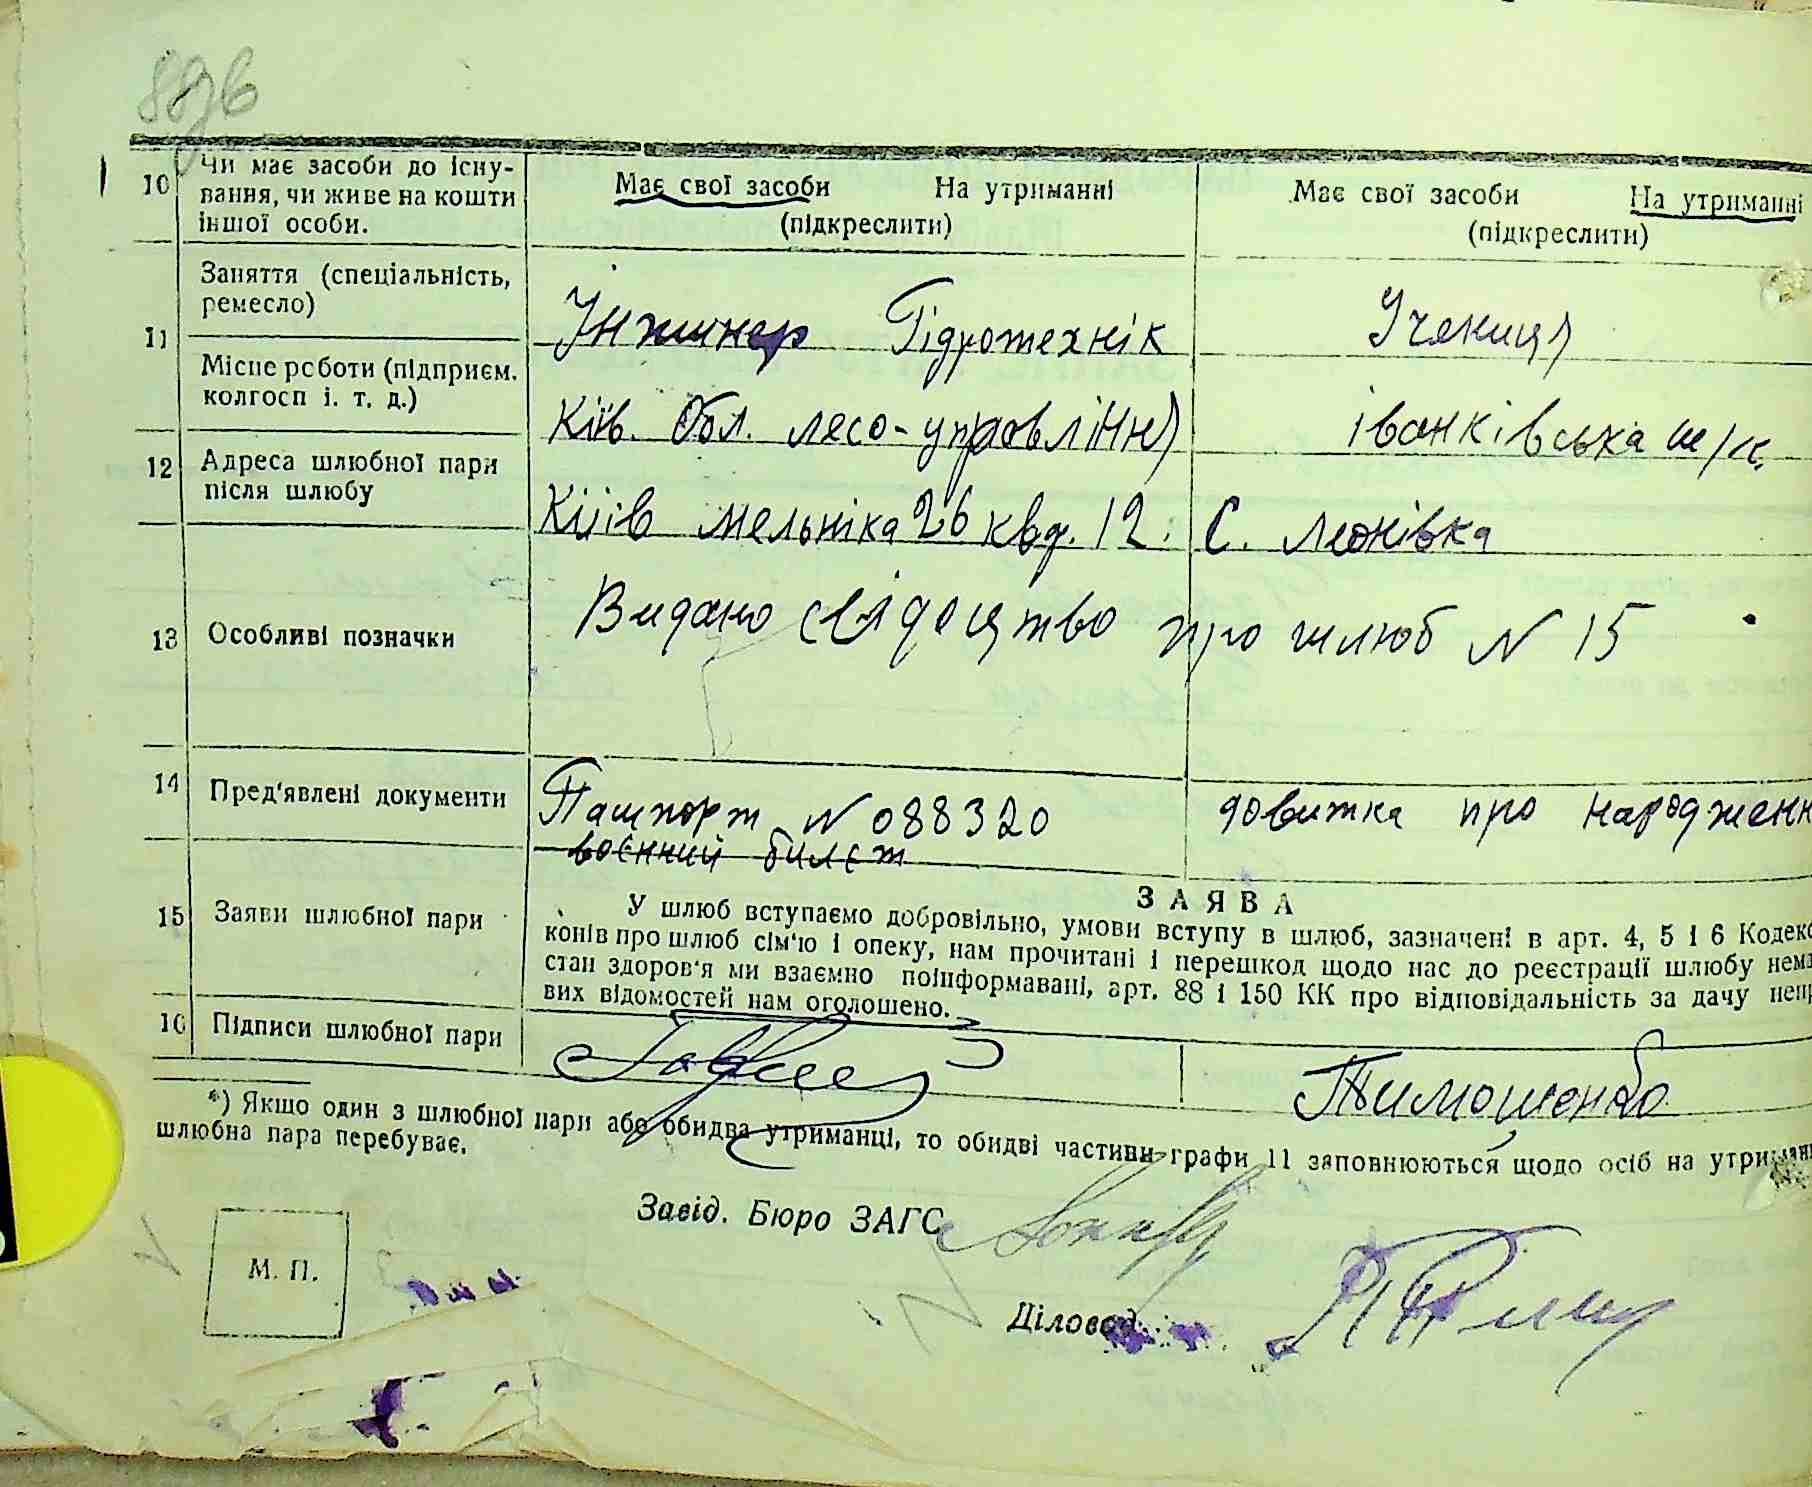 10 Чи має засоби до існу-
вання, чи живе на кошти
іншої особи.
Має свої засоби На утриманні
(підкреслити)
Має свої засоби На утриманні
(підкреслити)
11 Заняття (спеціальність,
ремесло)
Інжинер Гідротехнік
Учениця
Місце роботи (підприєм.
колгосп і. т. д.)
Київ. Обл. лесо-управління
іванківська ш/к.
12 Адреса шлюбної пари
після шлюбу
Київ мельніка 26 кв. 12.
С. Леонівка
13 Особливі позначки
Видано свідоцтво про шлюб N 15
14 Пред'явлені документи
Пашпорт N 088320
воєнний билєт
довижка про народженн
15 Заяви шлюбної пари
ЗАЯВА
У шлюб вступаємо добровільно, умови вступу в шлюб, зазначені в арт. 4, 5 і 6 Кодекс
конів про шлюб сім'ю і опеку, нам прочитані і перешкод щодо нас до реєстрації шлюбу нема
стан здоров'я ми взаємно поінформавані, арт. 88 і 150 КК про відповідальність за дачу непр
вих відомостей нам оголошено.
16 Підписи шлюбної пари
Тимошенко
*) Якшо один з шлюбної пари або обидва утриманці, то обидві частини графи 11 заповнюються щодо осіб на утриман
шлюбна пара перебуває.
Завід. Бюро ЗАГС
М. П.
Діловод